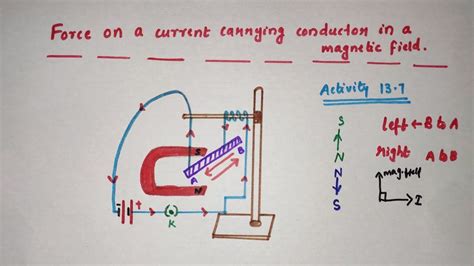 Force on a current carrying conductor in a
magnetic field.
Activity 13.7
S
N
N
S
left ← B to A
right A to B
mag. field
I
S
N
A
B
+
K